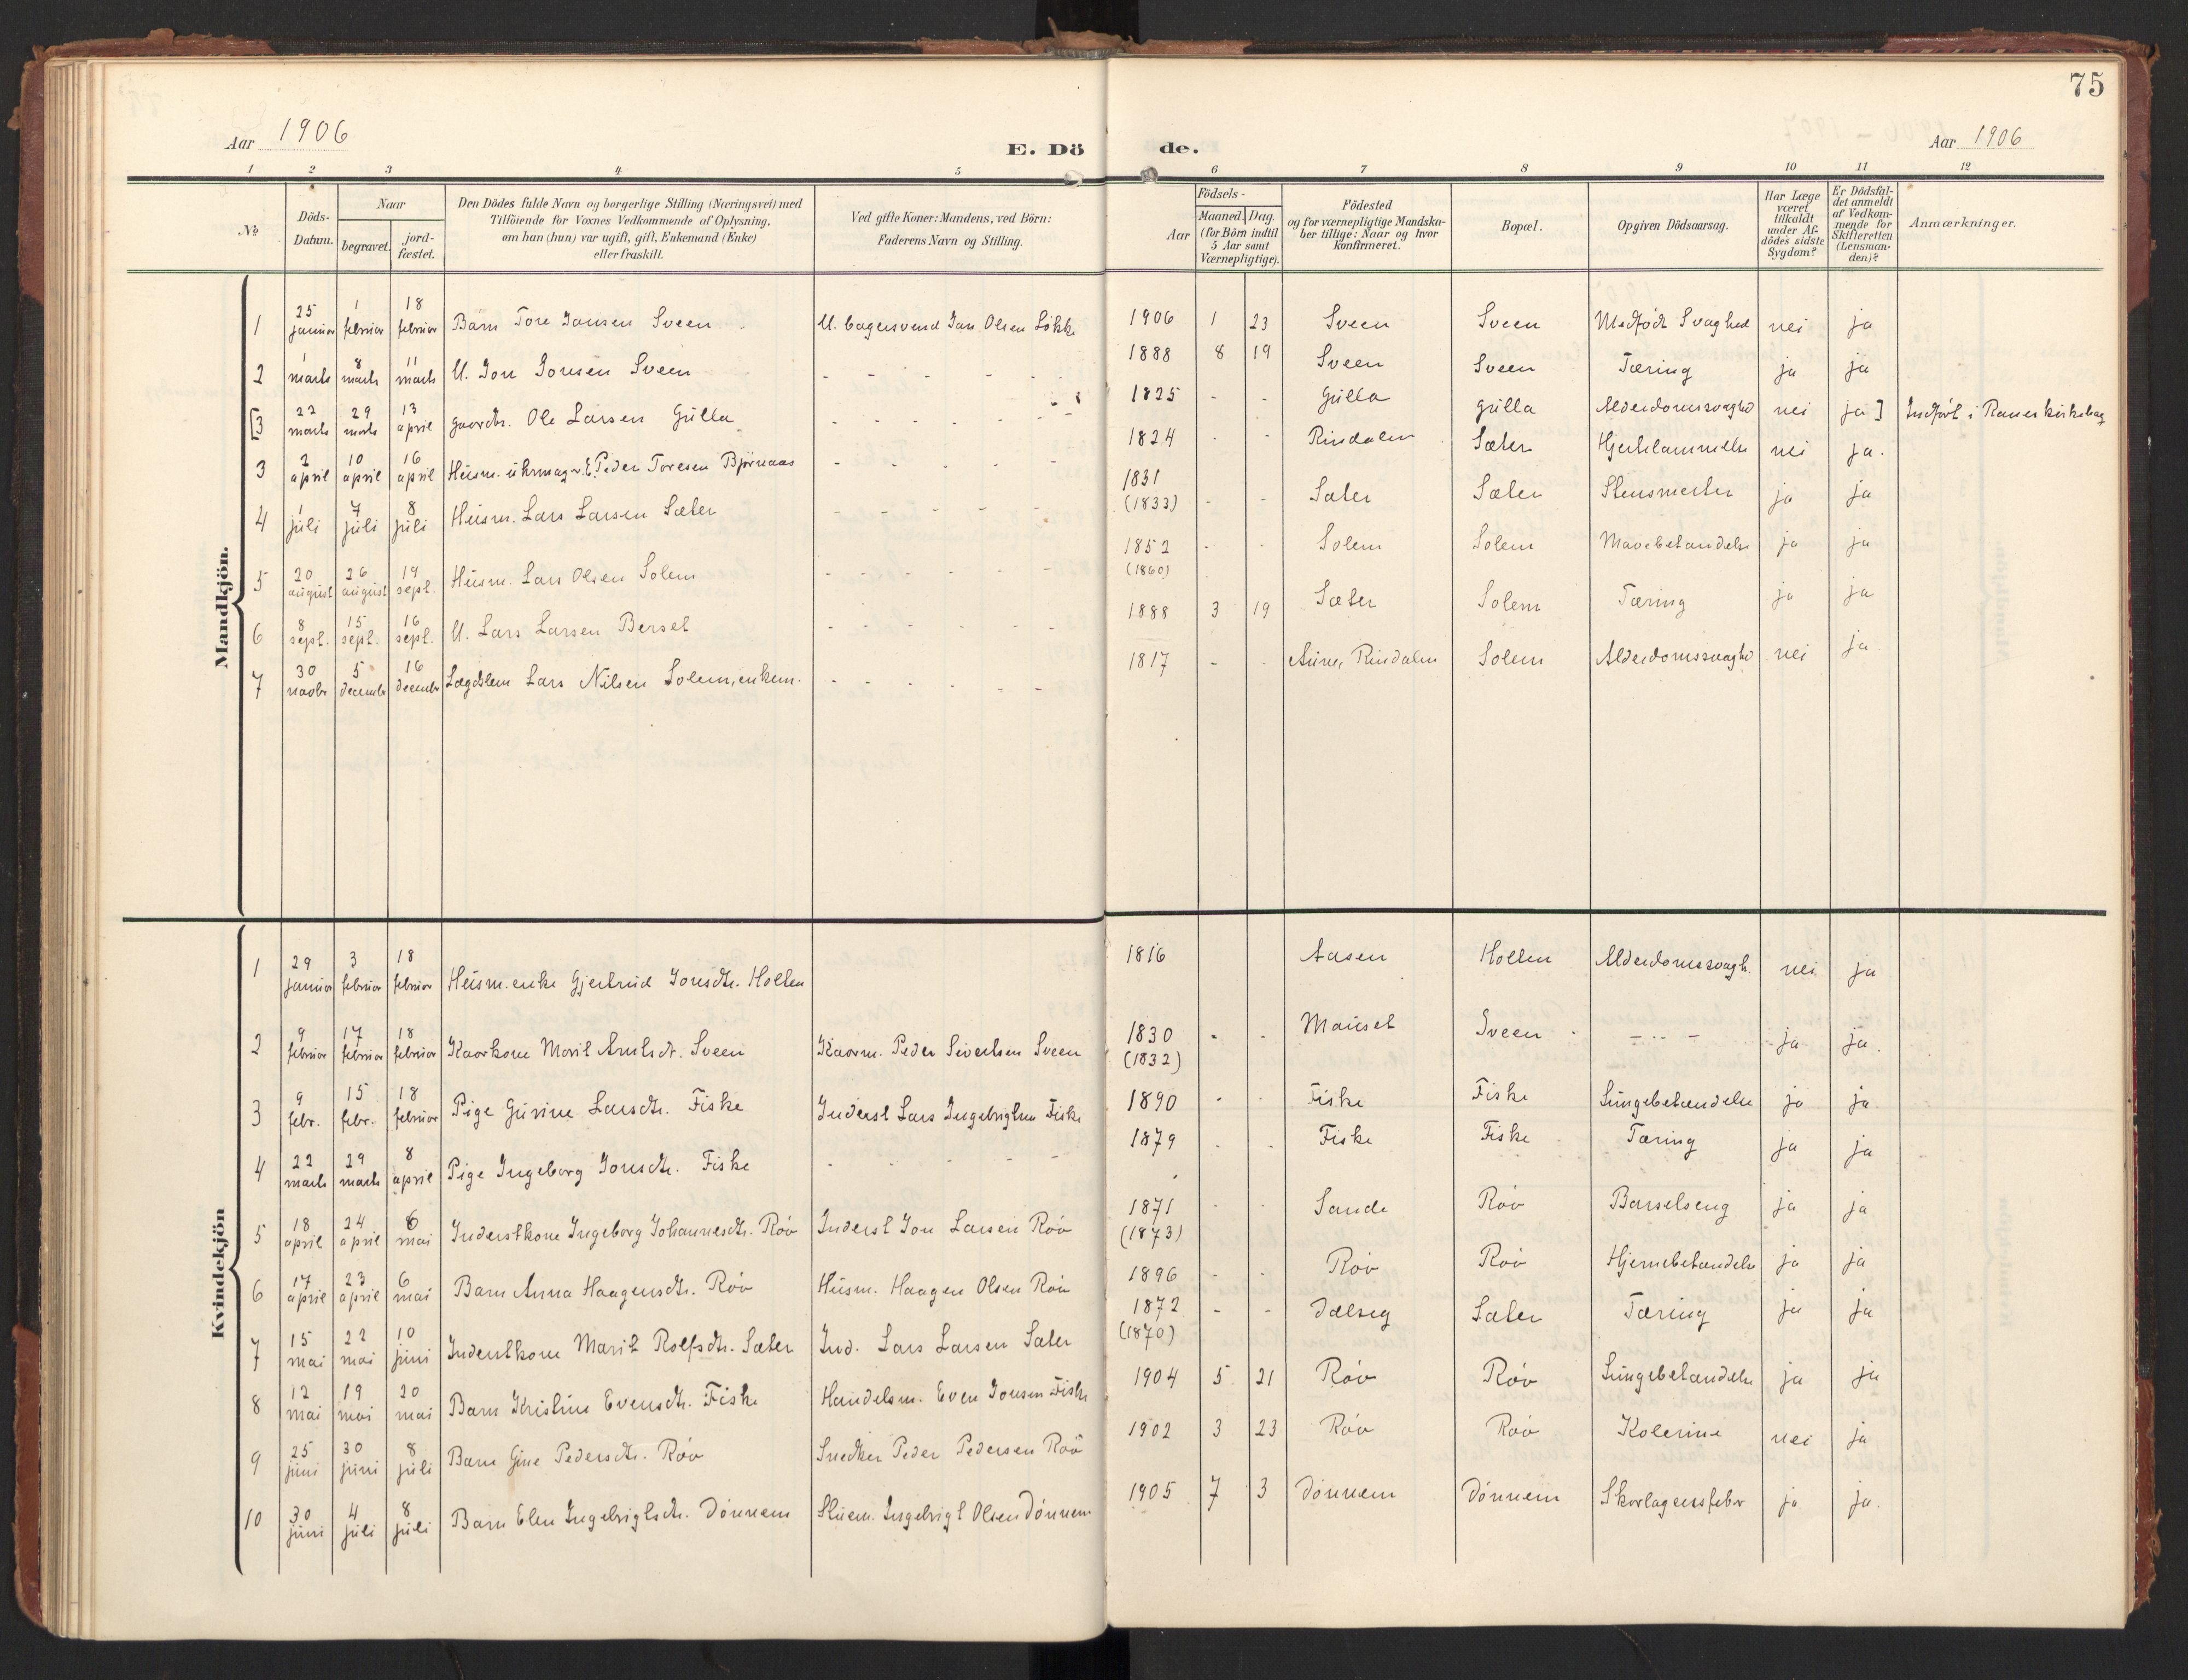 75
Aar 1906
E. Döde.
Aar 1906
1 2 3 4 5 6 7 8 9 10 11 12
№
Döds-Datum.
Naar
begravet.
jord-fæstet.
Den Dödes fulde Navn og borgerlige Stilling (Næringsvei) med
Tilföiende for Voxnes Vedkommende af Oplysning,
om han (hun) var ugift, gift, Enkemand (Enke)
eller fraskilt.
Ved gifte Koner: Mandens, ved Börn:
Faderens Navn og Stilling.
Födsels-
Aar
Maaned. Dag.
(for Börn indtil
5 Aar samt
Værnepligtige).
Födested
og for værnepligtige Mandska-
ber tillige: Naar og hvor
konfirmeret.
Bopæl.
Opgiven Dödsaarsag.
Har Læge
været
tilkaldt
under Af-
dödes sidste
Sygdom?
Er Dödsfal-
det anmeldt
af Vedkom-
mende for
Skifteretten
(Lensman-
den)?
Anmærkninger.
Mandkjön.
1 25 januar 1 februar 18 februar Barn Tore Jonsen Sveen U. bagersvend Jon Olsen Løkke 1906 1 23 Sveen Sveen Medfødt Svaghed nei ja
2 1 marts 8 marts 11 marts U. Jon Jonsen Sveen - - - - - 1888 8 19 Sveen Sveen Tæring ja ja
[3 22 marts 29 marts 13 april gaardbr. Ole Larsen Gulla - - - - - 1825 - - Gulla Gulla Alderdomssvaghd nei ja] Indført i Ranes kirkebog
3 2 april 10 april 16 april Husm. uhrmager E. Peder Toresen Bjørnaas - - - - - 1824 - - Rindalen Sæter Hjertelammelse nei ja.
4 1 juli 7 juli 8 juli Husm. Lars Larsen Sæter - - - - - 1831 (1833) - - Sæter Sæter Stensmerter ja ja
5 20 august 26 august 19 sept. Husm. Lars Olsen Solem - - - - - - 1852 (1860) - - Solem Solem Mavebetændelse ja ja
6 8 sept. 15 sept. 16 sept. U. Lars Larsen Berset - - - - - - 1888 3 19 Sæter Solem Tæring ja ja
7 30 novbr 5 decembr 16 decembr Lægdslem Lars Nilsen Solem, enkem. - - - - - - 1817 - - Aune, Rindalen Solem Alderdomssvaghd nei ja
Kvindekjön
1 29 januar 3 februar 18 februar Husm.enke Gjertrud Jonsdtr. Holten 1816 Aasen Holten Alderdomssvagh. nei ja
2 9 februar 17 februar 18 februar Kaarkone Marit Arntsdt. Sveen Kaarm. Peder Sivertsen Sveen 1830 (1832) - - Mauset Sveen - - - ja ja.
3 9 febr. 15 febr. 18 februar Pige Gurine Larsdtr. Fiske Inderst Lars Ingebrigtsen Fiske 1890 - - Fiske Fiske Lungebetændelse ja ja
4 22 marts 29 marts 8 april Pige Ingeborg Jonsdtr. Fiske - - - - - 1879 - - Fiske Fiske Tæring ja ja
5 18 april 24 april 6 mai Inderstkone Ingeborg Johannesdtr. Røv Inderst Jon Larsen Røv 1871 (1873) - - Sande Røv Barselseng ja ja
6 17 april 23 april 6 mai Barn Anna Haagensdtr. Røv Husm. Haagen Olsen Røv 1896 - - Røv Røv Hjernebetændelse ja ja
7 15 mai 22 mai 10 juni Inderstkone Marit Rolfsdtr. Sæter Ind. Lars Larsen Sæter 1872 (1870) - - Dalseg Sæter Tæring ja ja
8 12 mai 19 mai 20 mai Barn Kristine Evensdtr. Fiske Handelsm. Even Jonsen Fiske 1904 5 21 Røv Røv Lungebetændelse ja ja
9 25 juni 30 juni 8 juli Barn Gine Pedersdtr. Røv Snedker Peder Pedersen Røv 1902 3 23 Røv Røv Kolerine nei ja
10 30 juni 4 juli 8 juli Barn Elen Ingebrigtsdtr. Dønnem Stuem. Ingebrigt Olsen Dønnem 1905 7 3 Dønnem Dønnem Skarlagensfeber ja ja.